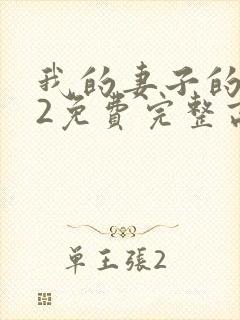 我的妻子的
2免費完整
單王張2